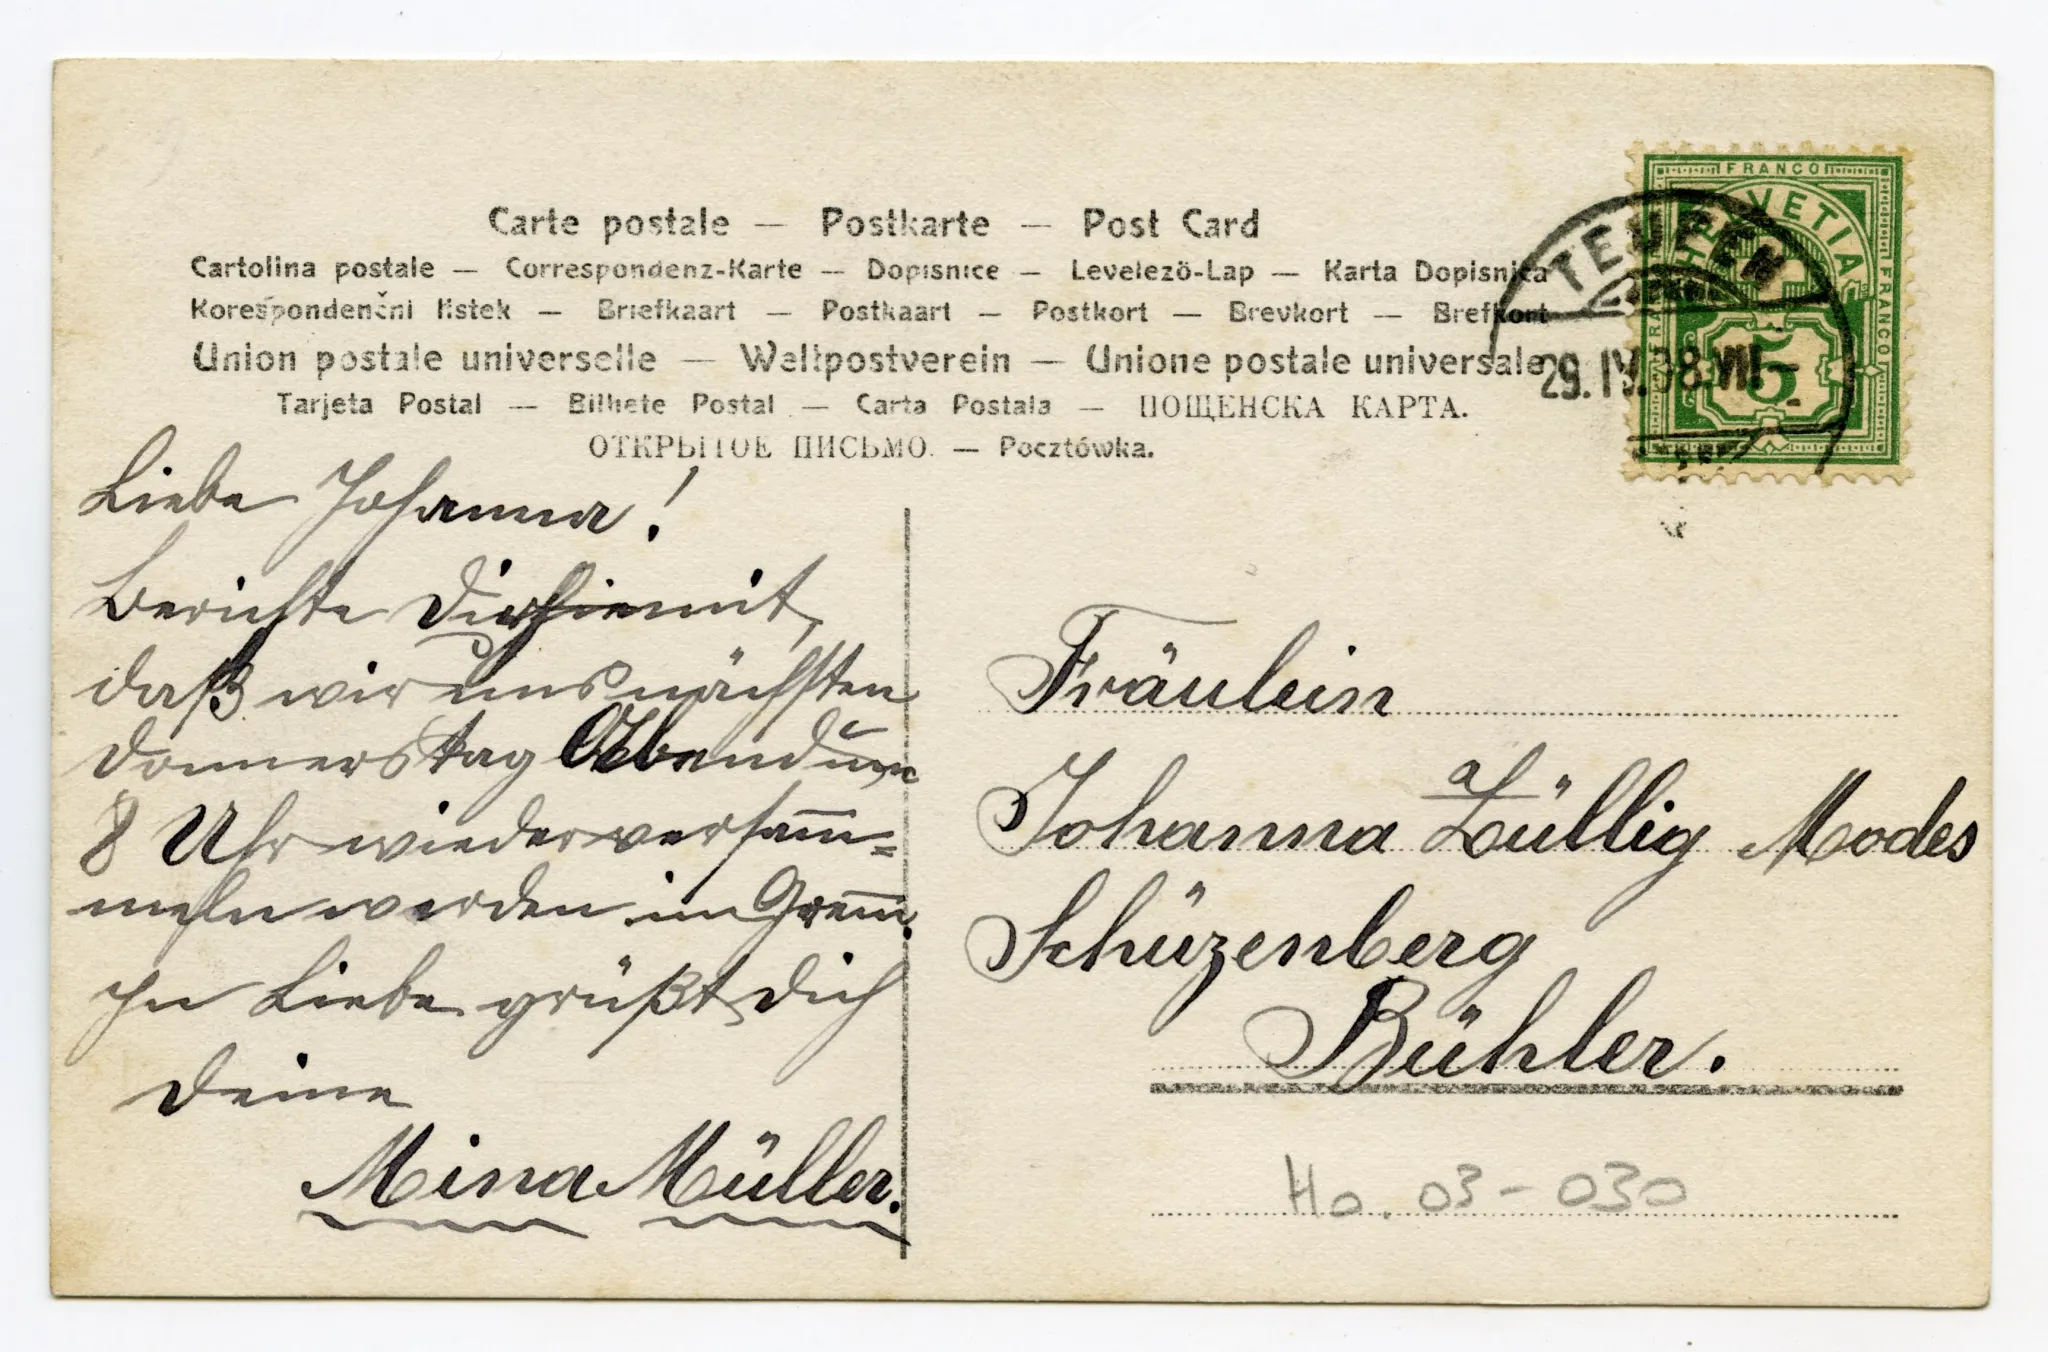 Carte postale — Postkarte — Post Card
Cartolina postale — Correspondenz-Karte — Dopisnice — Levelező-Lap — Karta Dopisnica
Korespondenční lístek — Briefkaart — Postkaart — Postkort — Brevkort — Brefkort
Union postale universelle — Weltpostverein — Unione postale universale
Tarjeta Postal — Bilhete Postal — Carta Postala — ПОЩЕНСКА КАРТА.
ОТКРЫТОЕ ПИСЬМО. — Pocztówka.
FRANCO
HELVETIA
FRANCO
FRANCO
5
TEUFEN
29. IV. 08. VII–
Liebe Johanna!
Berichte Dir hiemit,
daß wir uns nächsten
Donnerstag Abend um
8 Uhr wieder versam̅=
meln werden im
In Liebe grüßt Dich
Deine
Mina Müller.
Fräulein
Johanna Züllig Modes
Schüzenberg
Bühler.
Ho. 03-030